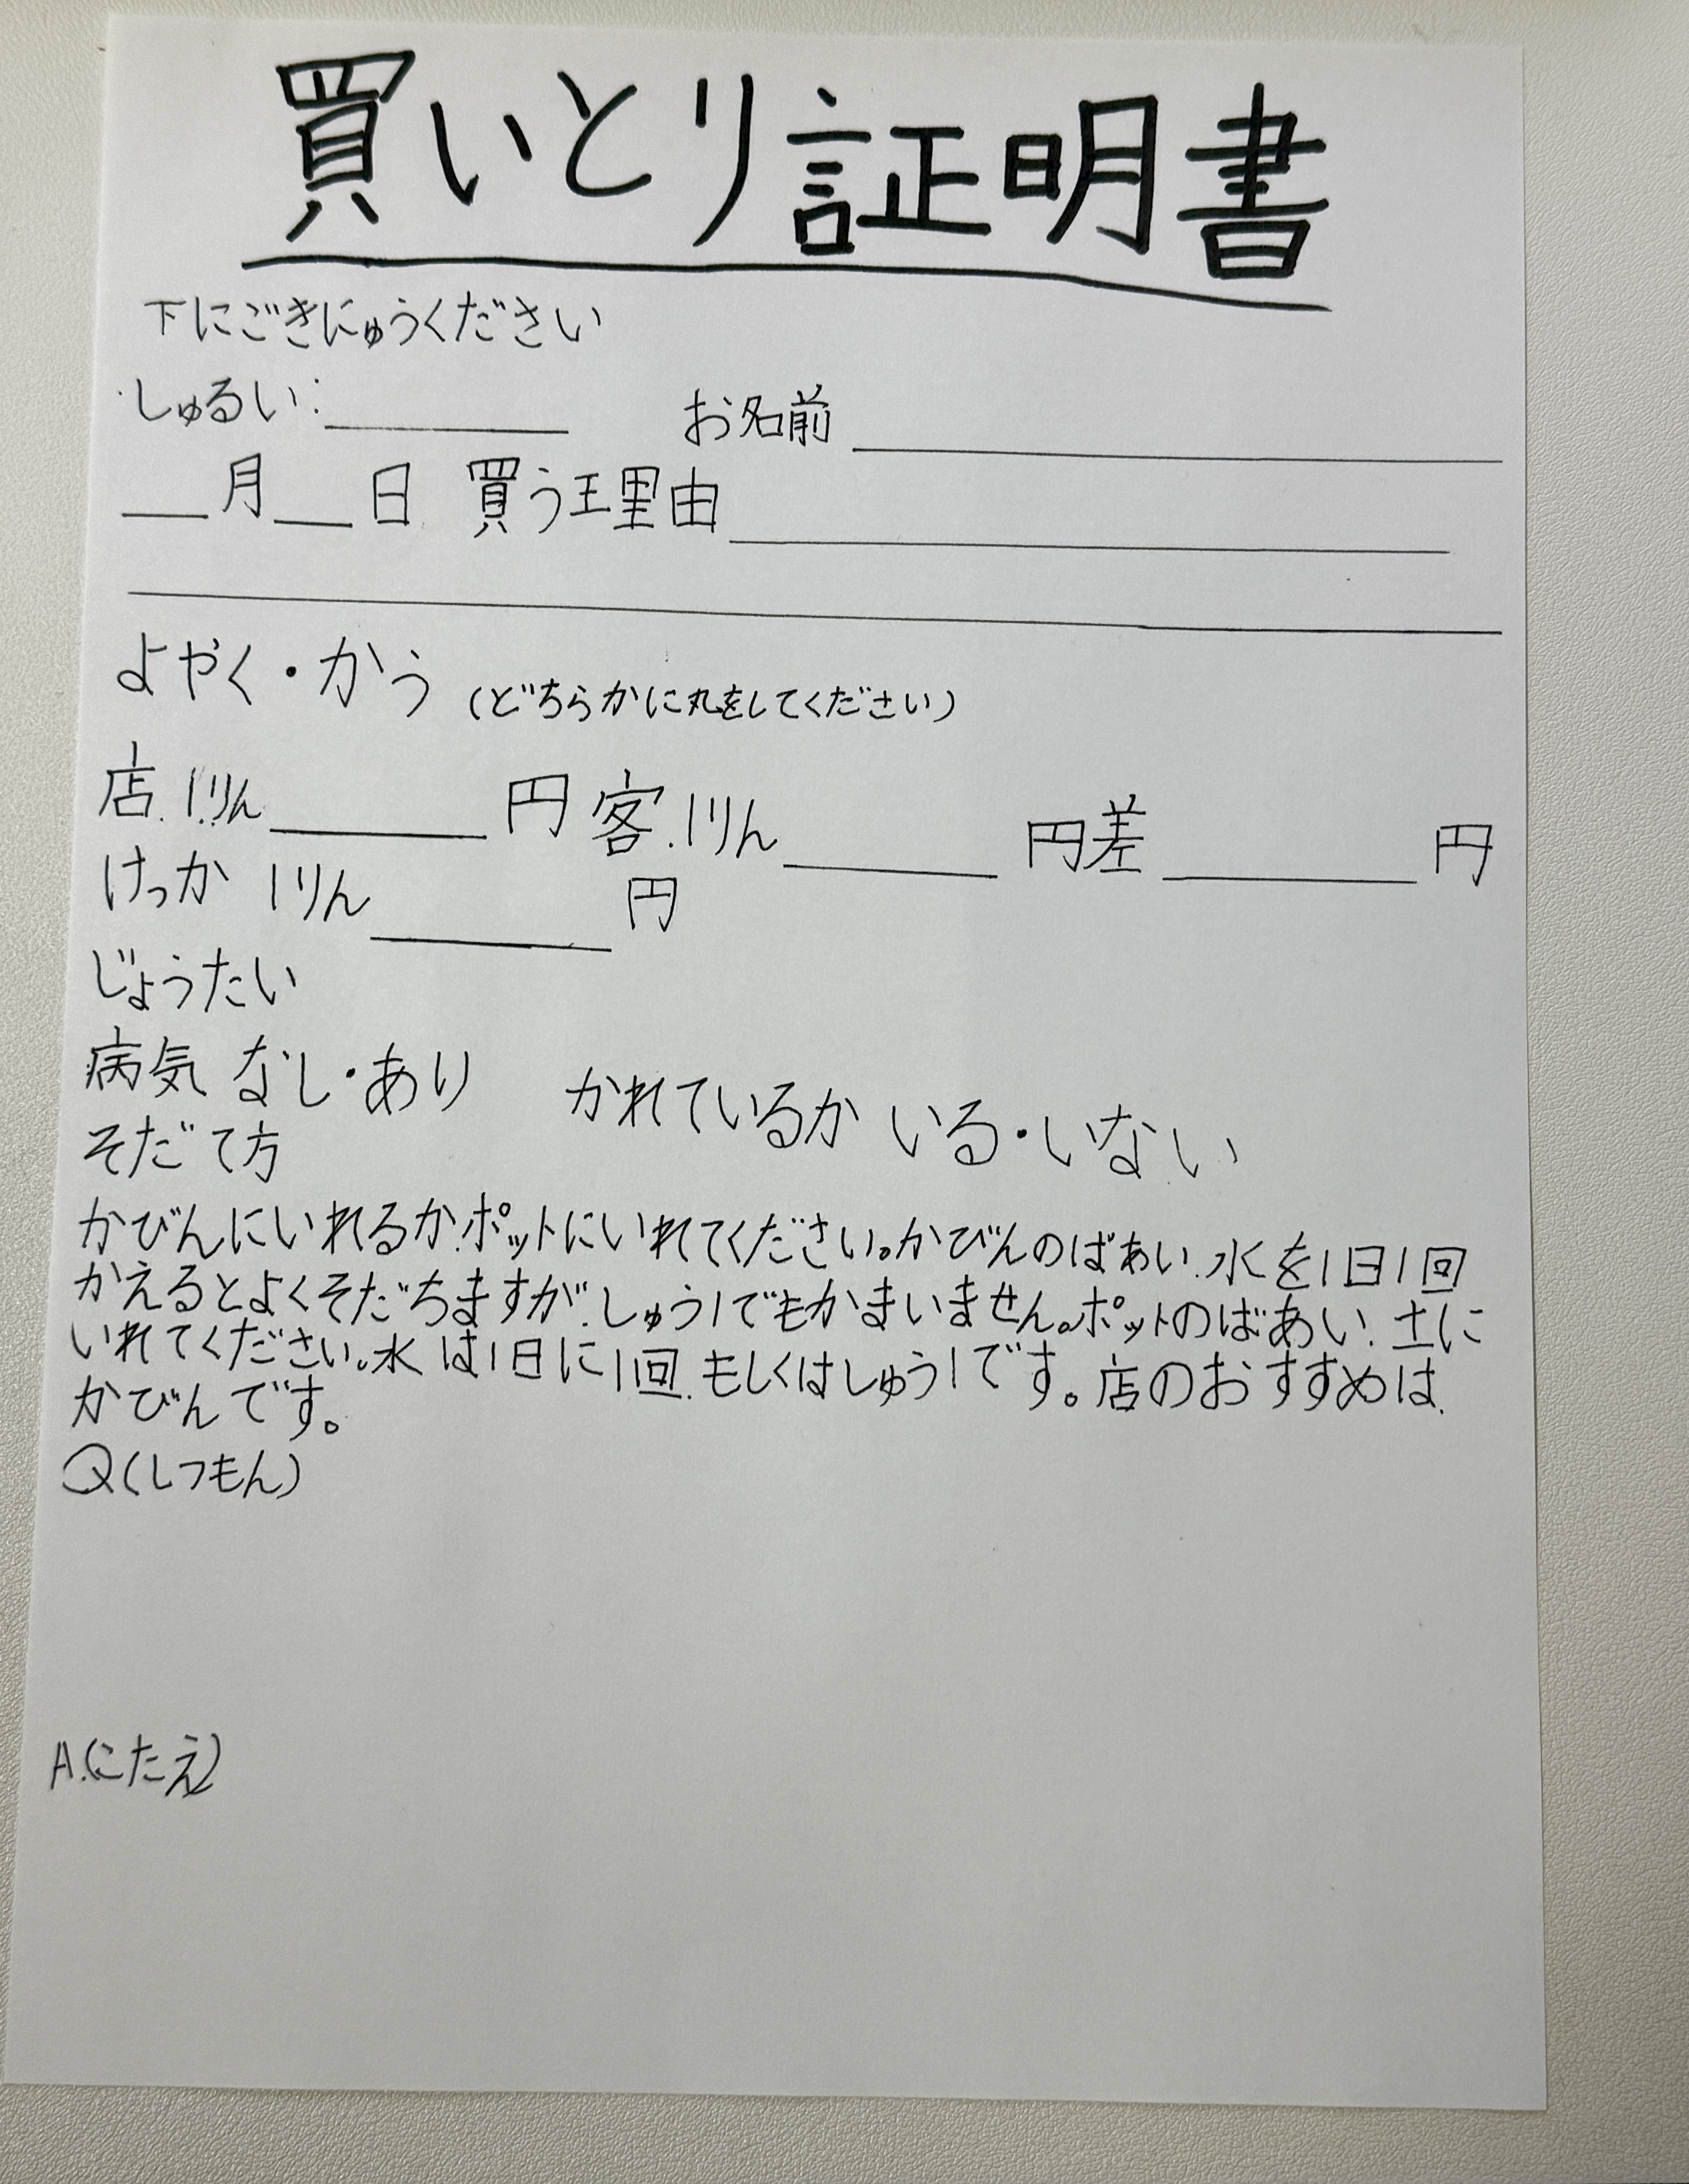 買いとり証明書
下にごきにゅうください
しゅるい:＿＿＿＿ お名前＿＿＿＿＿＿＿＿
＿＿月＿＿日 買う理由＿＿＿＿＿＿＿＿
よやく・かう (どちらかに丸をしてください)
店.1りん＿＿＿＿円 客.1りん＿＿＿＿円差＿＿＿＿円
けっか 1りん＿＿＿＿円
じょうたい
病気 なし・あり かれているか いる・いない
そだて方
かびんにいれるか.ポットにいれてください。かびんのばあい.水を1日1回
かえるとよくそだちますが.しゅう1でもかまいません。ポットのばあい.土に
いれてください。水は1日に1回.もしくはしゅう1です。店のおすすめは.
かびんです。
Q(しつもん)
A.(こたえ)